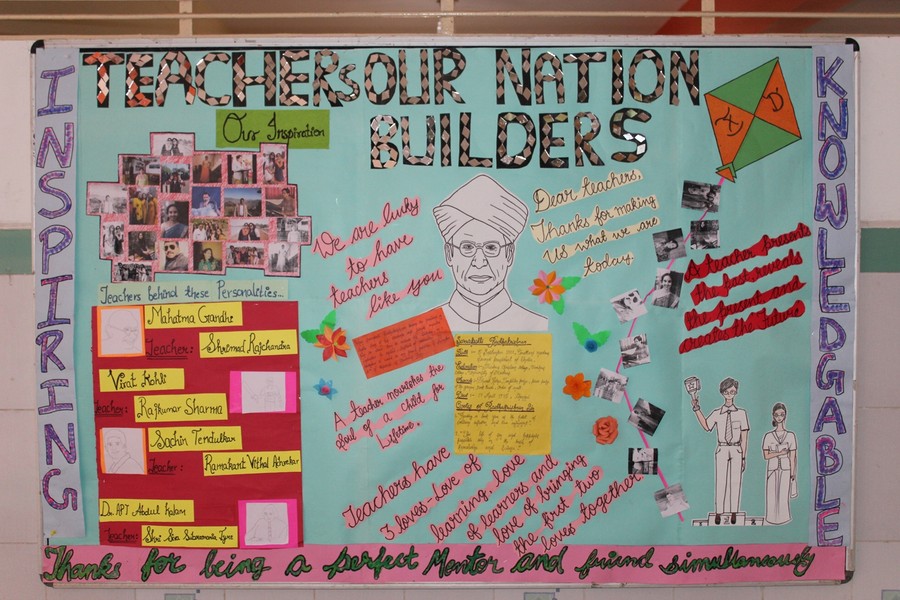 TEACHERS OUR NATION
BUILDERS
INSPIRING
KNOWLEDGABLE
Our Inspiration
Teachers behind these Personalities...
Mahatma Gandhi
Teacher: Shrimad Rajchandra
Virat Kohli
Teacher: Rajkumar Sharma
Sachin Tendulkar
Teacher: Ramakant Vithal Achrekar
Dr. APJ Abdul Kalam
Teacher: Shri Siva Subramania Iyer
We are lucky
to have
teachers
like you
Dear teachers,
Thanks for making
us what we are
today.
A teacher nourishes the
soul of a child for
lifetime.
Teachers have
3 loves-Love of
learning, love
of learners and
love of bringing
the first two
loves together
A teacher presents
the past reveals
the present and
creates the future
Thanks for being a perfect Mentor and friend simultaneously